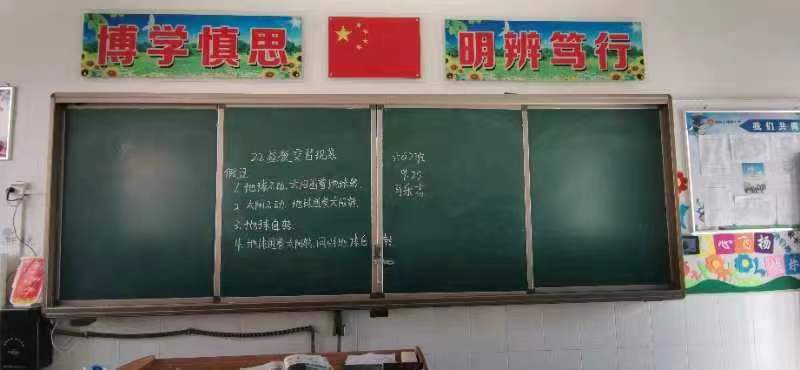 博学慎思
明辨笃行
2.2昼夜交替现象
假设
1.地球不动,太阳围着地球转。
2.太阳不动,地球围着太阳转。
3.地球自转。
4.地球围着太阳转,同时地球自转
六(2)班
9.25
我们
心飞扬